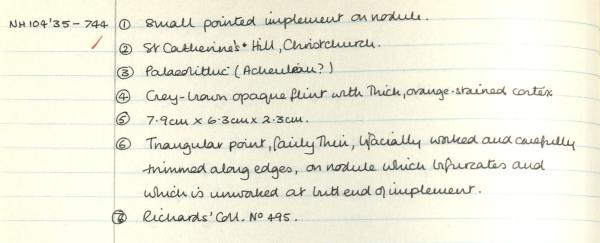 NH104'35-744 ① Small pointed implement on nodule.
② St Catherine's Hill, Christchurch.
③ Palaeolithic (Acheulean?)
④ Grey-brown opaque flint with thick, orange-stained cortex
⑤ 7.9cm x 6.3cm x 2.3cm.
⑥ Triangular point, fairly thin, bifacially worked and carefully
trimmed along edges, on nodule which bifurcates and
which is unworked at butt end of implement.
⑦ Richards' Coll. No 495.